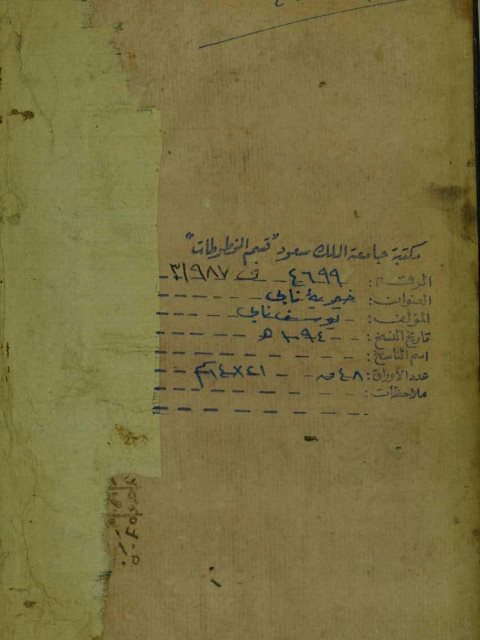 مكتبة جامعة الملك سعود "قسم المخطوطات"
الرقم: ٤٦٩٩ ف ٣/٩٨٧
العنوان: خيرية نابي
المؤلف: يوسف نابي
تاريخ النسخ: ١٠٩٤ هـ
اسم الناسخ:
عدد الأوراق: ٤٨ ق ٢١×١٤ سم
ملاحظات: